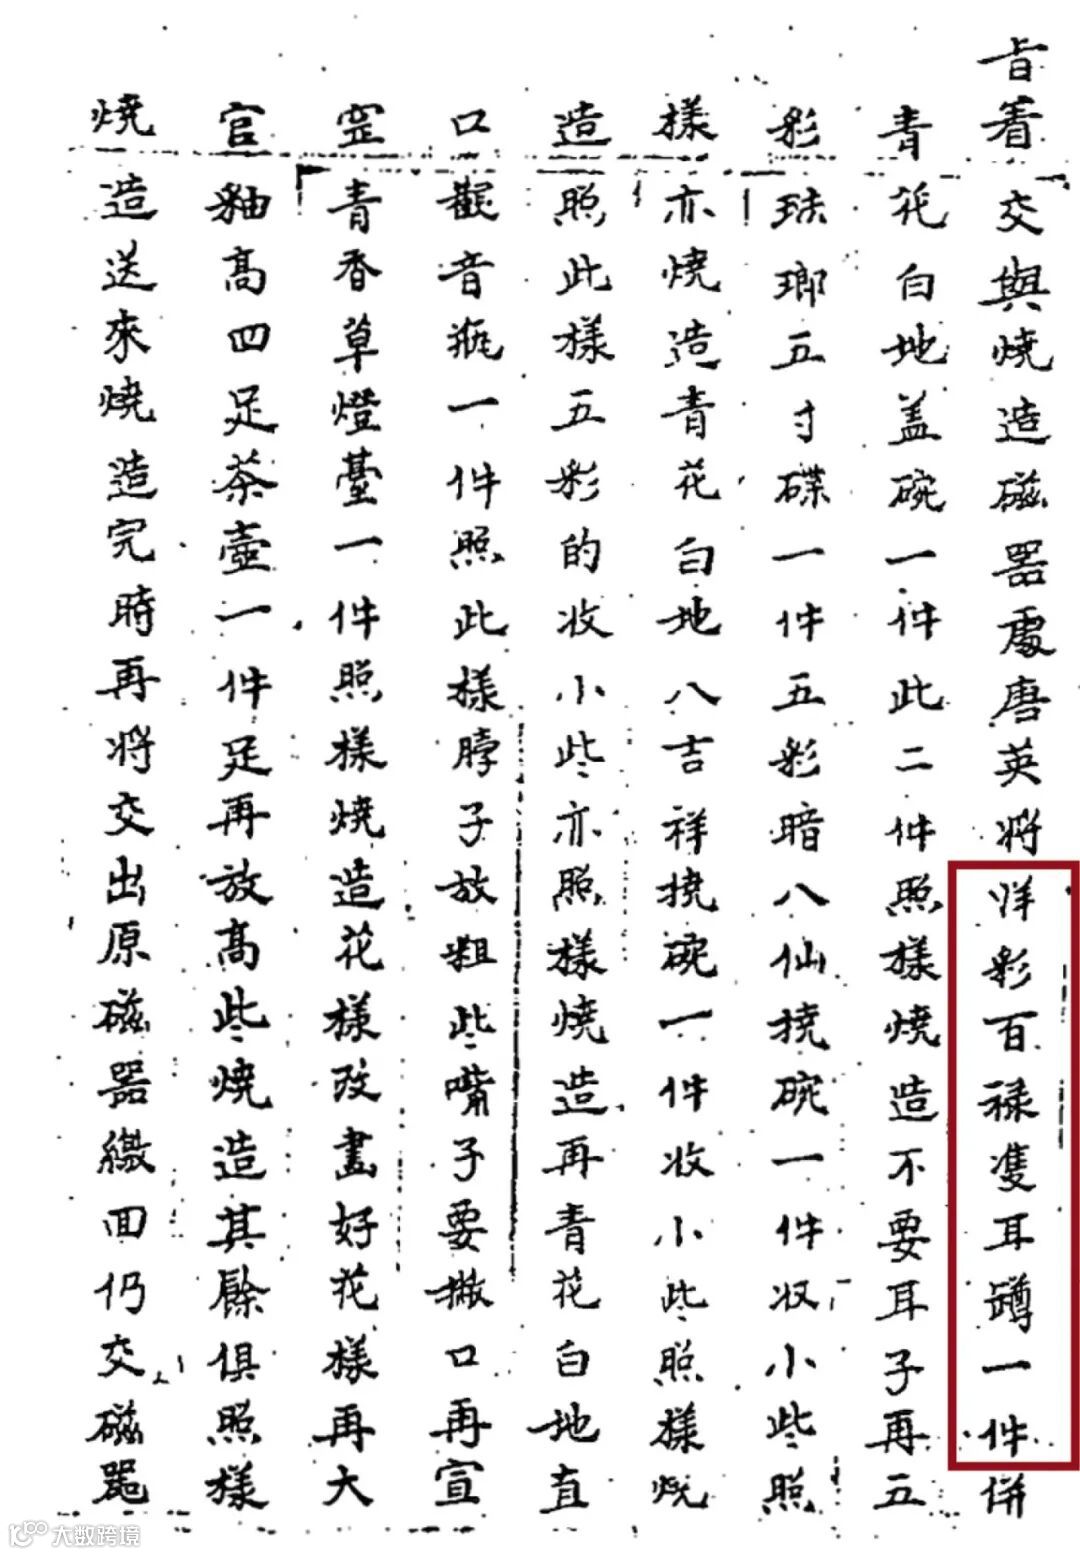 旨着交與燒造磁器處唐英將洋彩百祿雙耳罇一件併
青花白地盖碗一件此二件照樣燒造不要耳子再五
彩琺瑯五寸碟一件五彩暗八仙撓碗一件收小些照
樣亦燒造青花白地八吉祥撓碗一件收小些照樣燒
造照此樣五彩的收小些亦照樣燒造再青花白地直
口觀音瓶一件照此樣脖子放粗些嘴子要撇口再宣
窑青香草燈臺一件照樣燒造花樣改畫好花樣再大
官釉高四足茶壺一件足再放高些燒造其餘俱照樣
燒造送來燒造完時再將交出原磁器繳回仍交磁器
大数跨境